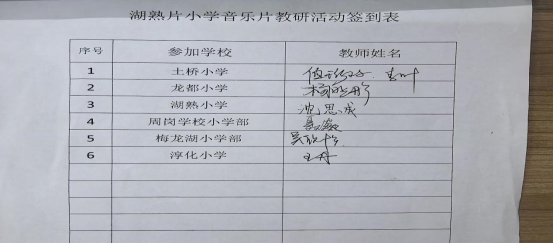 湖熟片小学音乐片教研活动签到表
序号 参加学校 教师姓名
1 土桥小学
2 龙都小学
3 湖熟小学 沈思成
4 周岗学校小学部
5 梅龙湖小学部
6 淳化小学 王丹